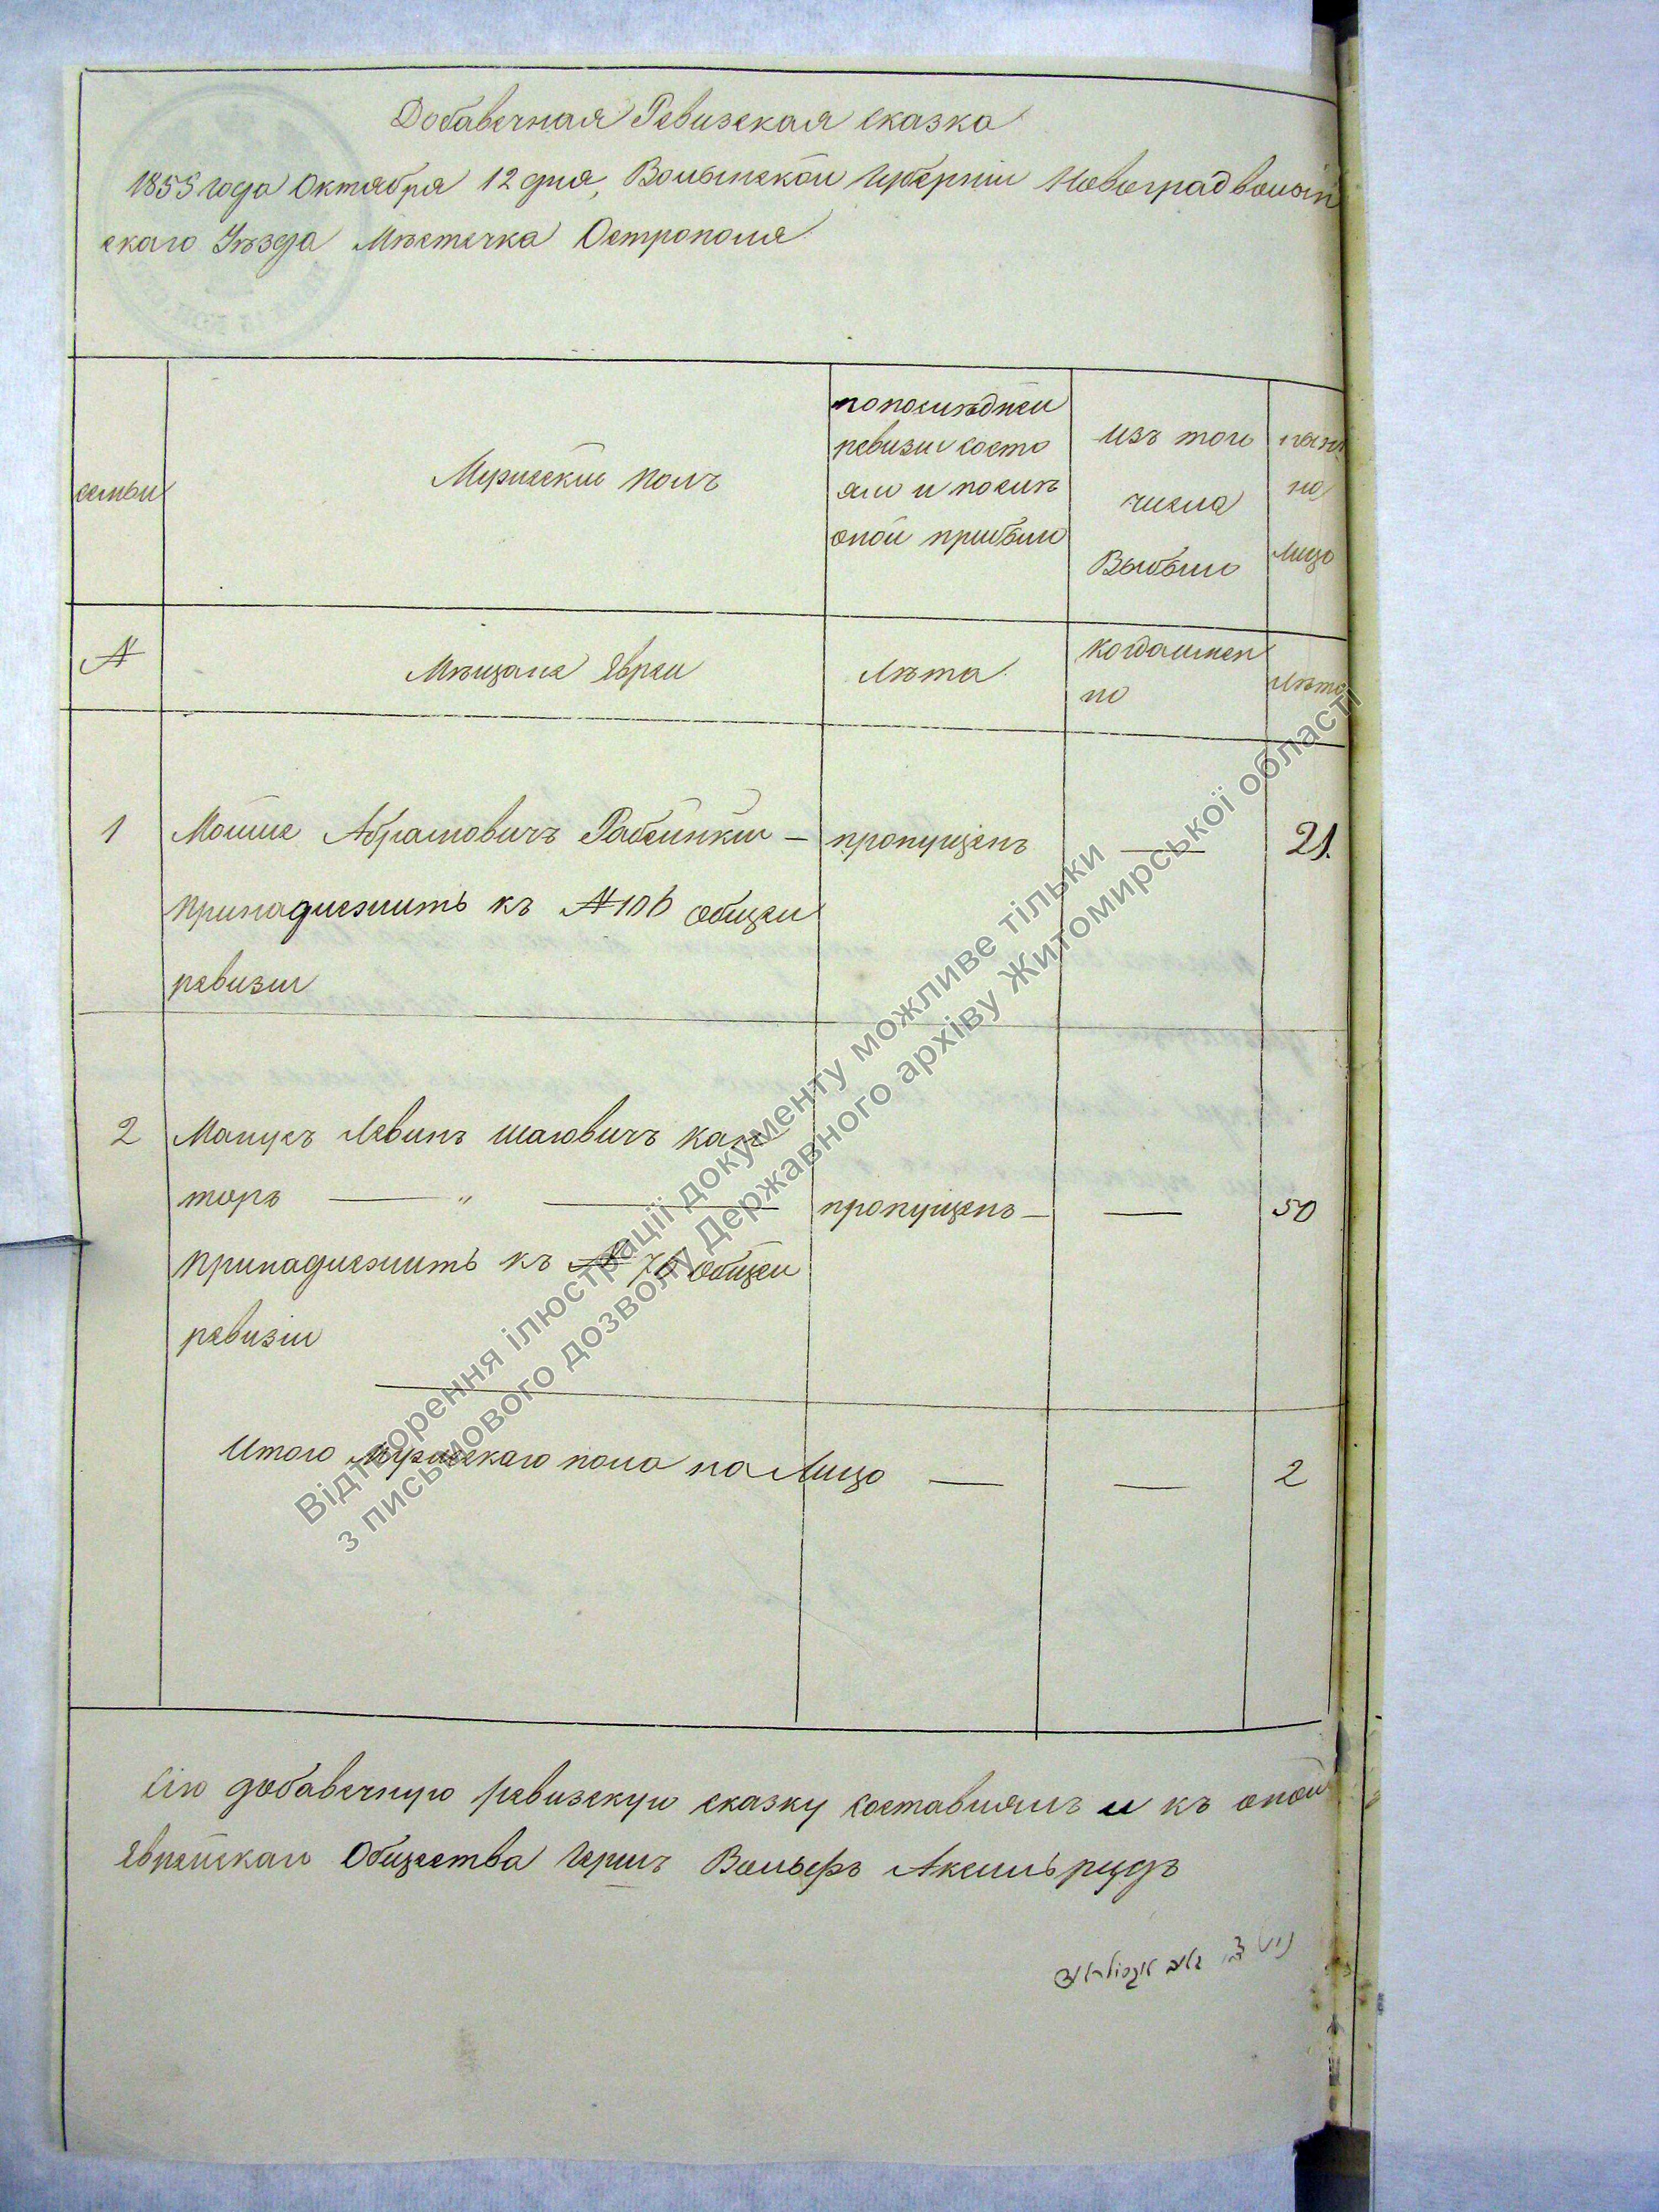 Добавочная Ревизская сказка
1855 года Октября 12 дня, Волынской Губерніи Новоградволын
скаго Уѣзда Мѣстечка Острополя
семьи
Мужескій полъ
по послѣдней
ревизіи состо
яло и послѣ
оной прибыло
изъ того
числа
Выбыло
нынѣ
на
лицо
№
Мѣщане Евреи
Лѣта
когда имен
но
Лѣта
1
Мошке Абрамовичъ —
пропущенъ
—
21.
принадлежитъ къ № 106 общей
ревизіи
2
Манусъ Левинъ Кан
торъ — " —
пропущенъ —
—
50
принадлежитъ къ № 76 общей
ревизіи
Итого Мужескаго пола на Лицо —
—
2
Сію добавочную ревизскую сказку составлялъ и къ оной
Еврейскаго Общества Вольфъ Аксельрудъ
Відтворення ілюстрації документу можливе тільки
з письмового дозволу Державного архіву Житомирської області